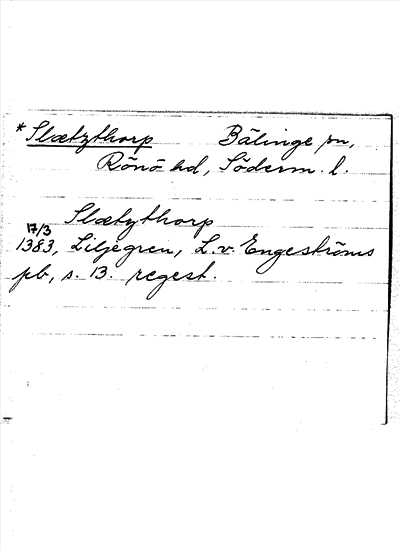 *Slætzthorp Bälinge sn,
Rönö hd, Söderm. l.
Slætzthorp
17/3
1383, Liljegren, L. v. Engeströms
pb, s. 13. regest.